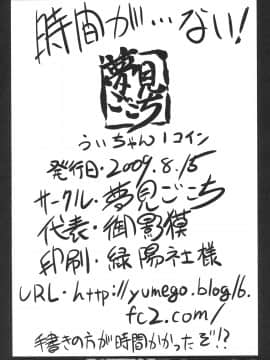 時間が…ない!
夢見
ごこち
うぃちゃん1コイン
発行日・2009.8.15
サークル・夢見ごこち
代表・御影獏
印刷・緑陽社様
URL・http://yumego.blog16.
fc2.com/
手書きの方が時間かかったぞ!?